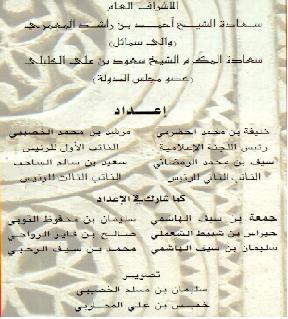 الاشراف العام
سعادة الشيخ أحمد بن راشد المعمري
(والي سمائل)
سعادة المكرم الشيخ سعود بن علي الخليلي
(عضو مجلس الدولة)
إعداد
خليفة بن محمد الحضرمي مرشد بن محمد الخصيبي
رئيس اللجنة الإعلامية النائب الأول للرئيس
سيف بن محمد الرمضاني سعيد بن سالم
النائب الثاني للرئيس النائب الثالث للرئيس
كما شارك في الإعداد
جمعة بن سيف الهاشمي سليمان بن محفوظ التوبي
حبراس بن شبيط الشعملي صالح بن فايز الرواحي
سليمان بن سيف الهاشمي محمد بن سيف الرحبي
تصوير
سليمان بن مسلم الخصيبي
خميس بن علي المحاربي